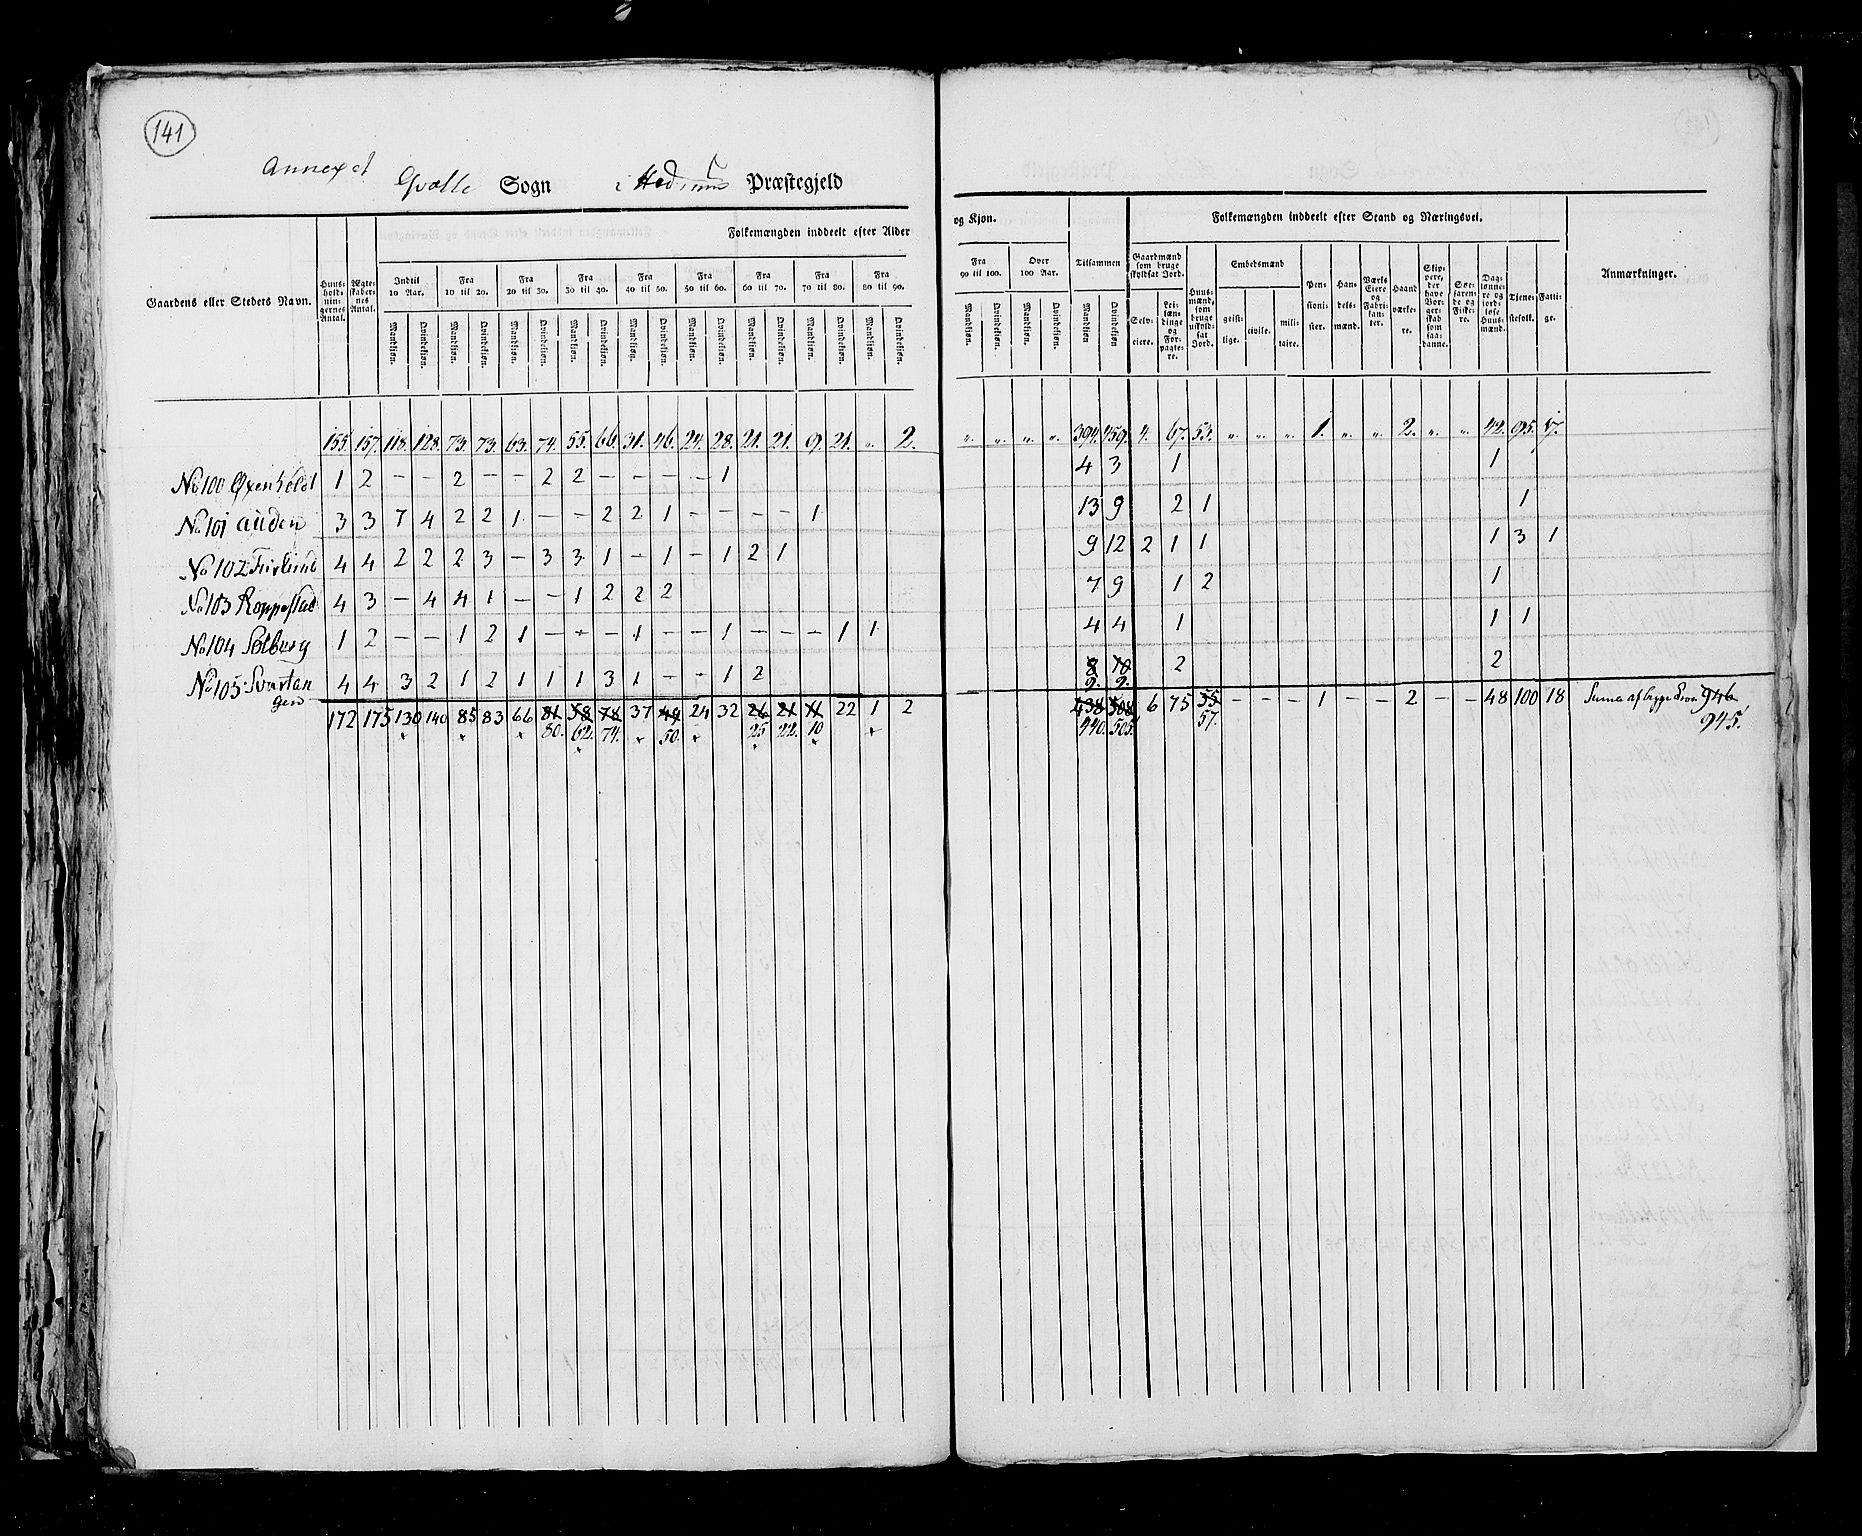 141
Annexet Sogn Præstegjeld
Gaardens eller Stedets Navn. Huus-holdningernes Antal. Ægteskabernes Antal. Folkemængden inddeelt efter Alder og Kjøn. Folkemængden inddeelt efter Stand og Næringsvei. Anmærkninger.
Indtil 10 Aar. Fra 10 til 20. Fra 20 til 30. Fra 30 til 40. Fra 40 til 50. Fra 50 til 60. Fra 60 til 70. Fra 70 til 80. Fra 80 til 90. Fra 90 til 100. Over 100 Aar. Tilsammen Gaardmænd som bruge skyldsat Jord. Huusmænd, som bruge uskyldsat Jord. Embedsmænd Pensionister. Handelsmænd. Værks Eiere og Fabrikanter. Haandværkere. Søefarende og Fiskere. Tjenestefolk. Fattige.
Mandkjøn. Qvindekjøn. Mandkjøn. Qvindekjøn. Mandkjøn. Qvindekjøn. Mandkjøn. Qvindekjøn. Mandkjøn. Qvindekjøn. Mandkjøn. Qvindekjøn. Mandkjøn. Qvindekjøn. Mandkjøn. Qvindekjøn. Mandkjøn. Qvindekjøn. Mandkjøn. Qvindekjøn. Mandkjøn. Qvindekjøn. Mandkjøn Qvindekjøn Selveiere. Leilændinge og Forpagtere. geistlige. civile. militaire.
155. 157. 118. 128. 73. 73. 63. 74. 55. 66. 31. 46. 24. 28. 21. 21. 9. 21. „ 2. „ „ „ „ 394. 459. 4. 67. 53. „ „ „ 1. „ „ 2. „ „ 42. 95. 17.
No 100 Øxenholdt 1 2 – – 2 – – 2 2 – – – – 1 4 3 1 1
No 101 Auden 3 3 7 4 2 2 1 – – 2 2 1 – – – – 1 13 9 2 1 1
No 102 4 4 2 2 2 3 – 3 3 1 – 1 – 1 2 1 9 12 2 1 1 1 3 1
No 103 Roppestad 4 3 – 4 4 1 – – 1 2 2 2 7 9 1 2 1
No 104 Solberg 1 2 – – 1 2 1 – – – 1 – – 1 – – – 1 1 4 4 1 1 1
No 105 Svartangen 4 4 3 2 1 2 1 1 1 3 1 – – 1 2 8 10 2 2
9. 9.
172 175 130 140 85 83 66 81 58 78 37 49 24 32 26 21 11 22 1 2 438 508 6 75 55 – – – 1 – – 2 – – 48 100 18 Suma af 946
80. 62. 74. 50. 25 22. 10 440. 505. 57. 945.